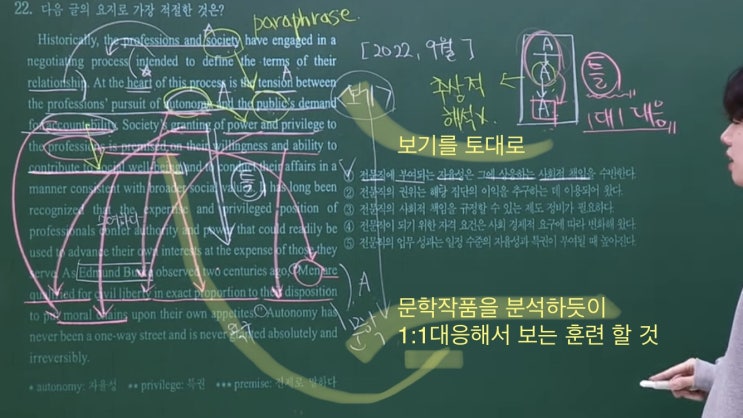 22. 다음 글의 요지로 가장 적절한 것은?
paraphrase.
Historically, the professions and society have engaged in a
negotiating process intended to define the terms of their
relationship. At the heart of this process is the tension between
the professions' pursuit of autonomy and the public's demand
for accountability. Society's granting of power and privilege to
the professions is premised on their willingness and ability to
contribute to social well-being and to conduct their affairs in a
manner consistent with broader social values. It has long been
recognized that the expertise and privileged position of
professionals confer authority and power that could readily be
used to advance their own interests at the expense of those they
serve. As Edmund Burke observed two centuries ago, "Men are
qualified for civil liberty in exact proportion to their disposition
to put moral chains upon their own appetites." Autonomy has
never been a one-way street and is never granted absolutely and
irreversibly.
* autonomy: 자율성 ** privilege: 특권 *** premise: 전제로 말하다
[2022, 9월]
<보기>
추상적
해석 x.
A
A
A
틀
1대1 대응
보기를 토대로
① 전문직에 부여되는 자율성은 그에 상응하는 사회적 책임을 수반한다.
② 전문직의 권위는 해당 집단의 이익을 추구하는 데 이용되어 왔다.
③ 전문직의 사회적 책임을 규정할 수 있는 제도 정비가 필요하다.
④ 전문직이 되기 위한 자격 요건은 사회 경제적 요구에 따라 변화해 왔다.
⑤ 전문직의 업무 성과는 일정 수준의 자율성과 특권이 부여될 때 높아진다.
틀
A
A
A
문학작품을 분석하듯이
1:1대응해서 보는 훈련 할 것